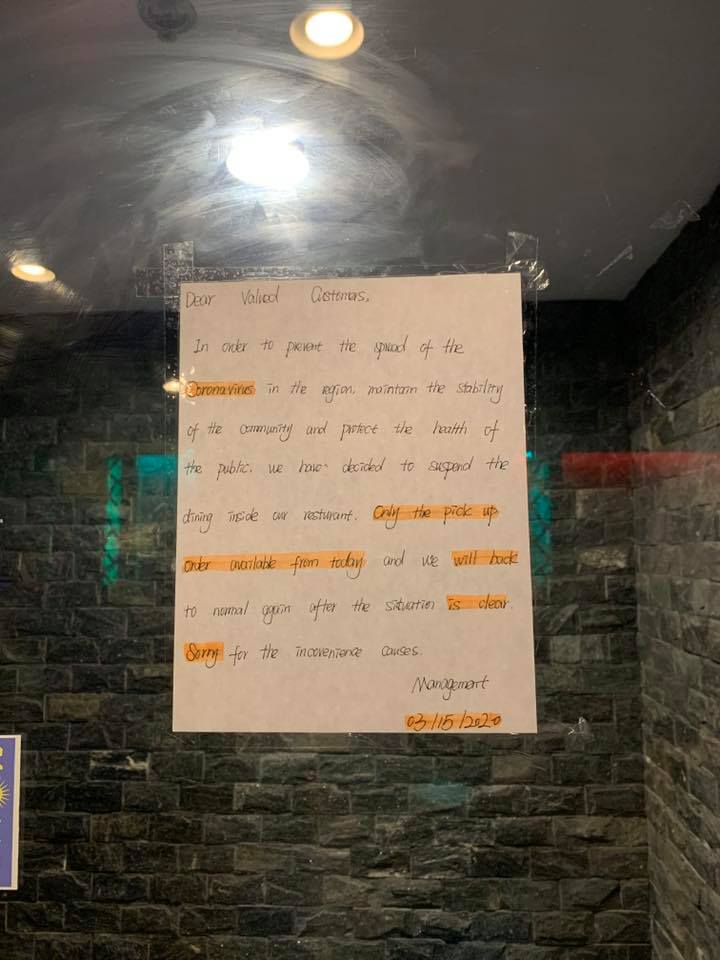 Dear Valued Customers,
In order to prevent the spread of the
Coronavirus in the region, maintain the stability
of the community and protect the health of
the public. we have decided to suspend the
dining inside our resturant. Only the pick up
order available from today and we will back
to normal again after the situation is clear.
Sorry for the incovenience causes.
Management
03/15/2020